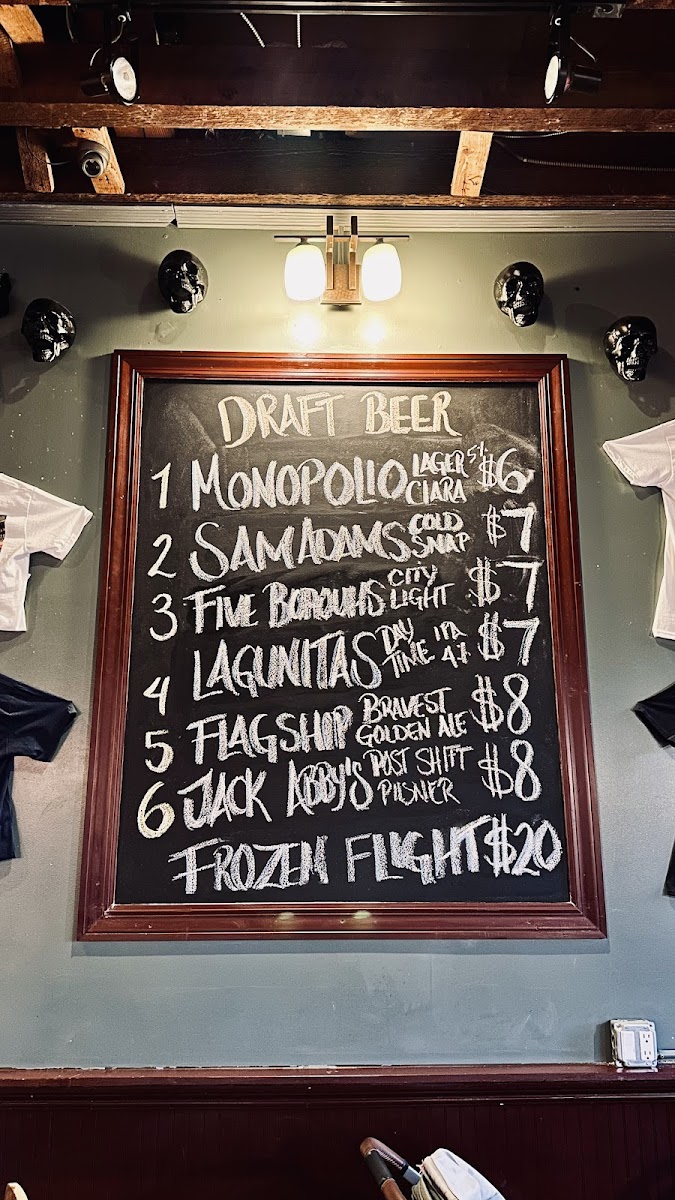 DRAFT BEER
1 MONOPOLIO LAGER CLARA 5% $6
2 SAM ADAMS COLD SNAP $7
3 FIVE BOROUHS CITY LIGHT $7
4 LAGUNITAS DAY TIME IPA 4% $7
5 FLAGSHIP BRAVEST GOLDEN ALE $8
6 JACK ABBY'S POST SHIFT PILSNER $8
FROZEN FLIGHT $20